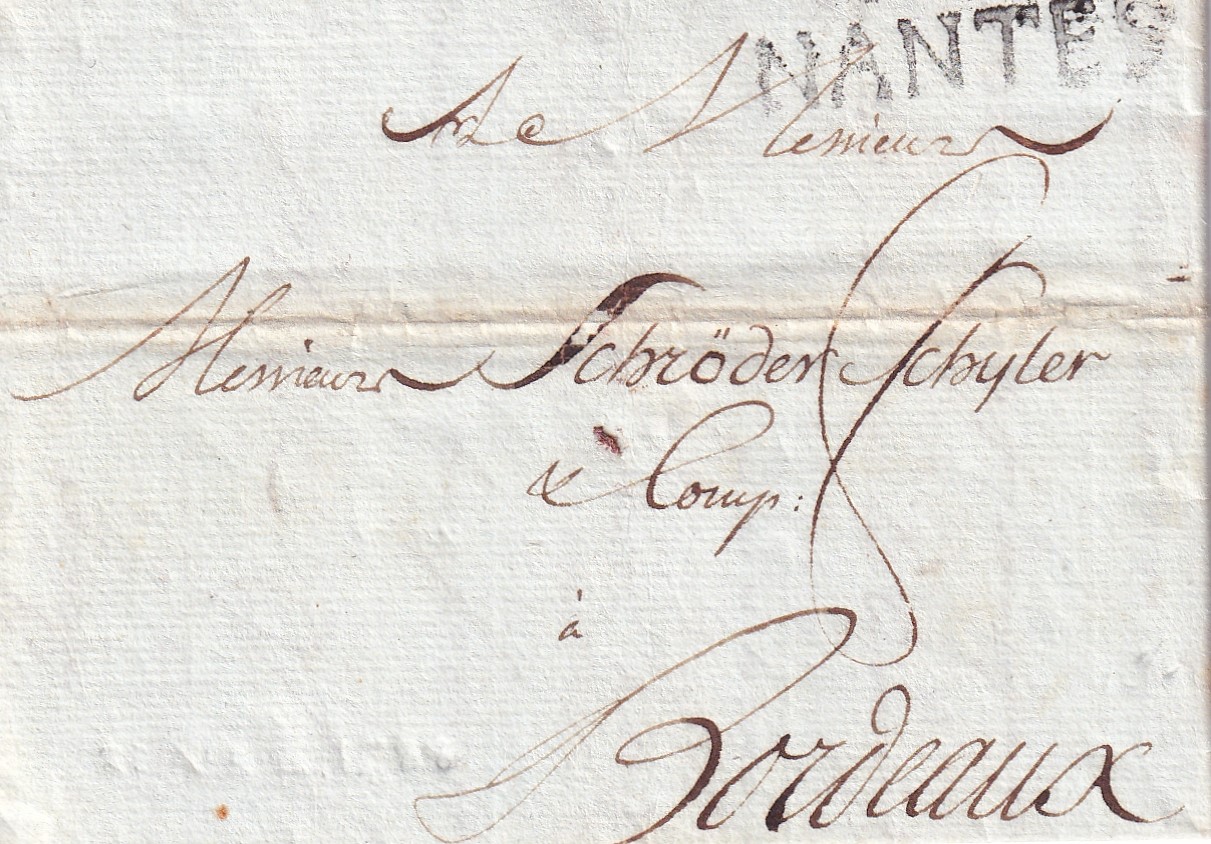 NANTES
A Messieurs
Messieurs Schröder Schyler
& Comp:
à
Bordeaux